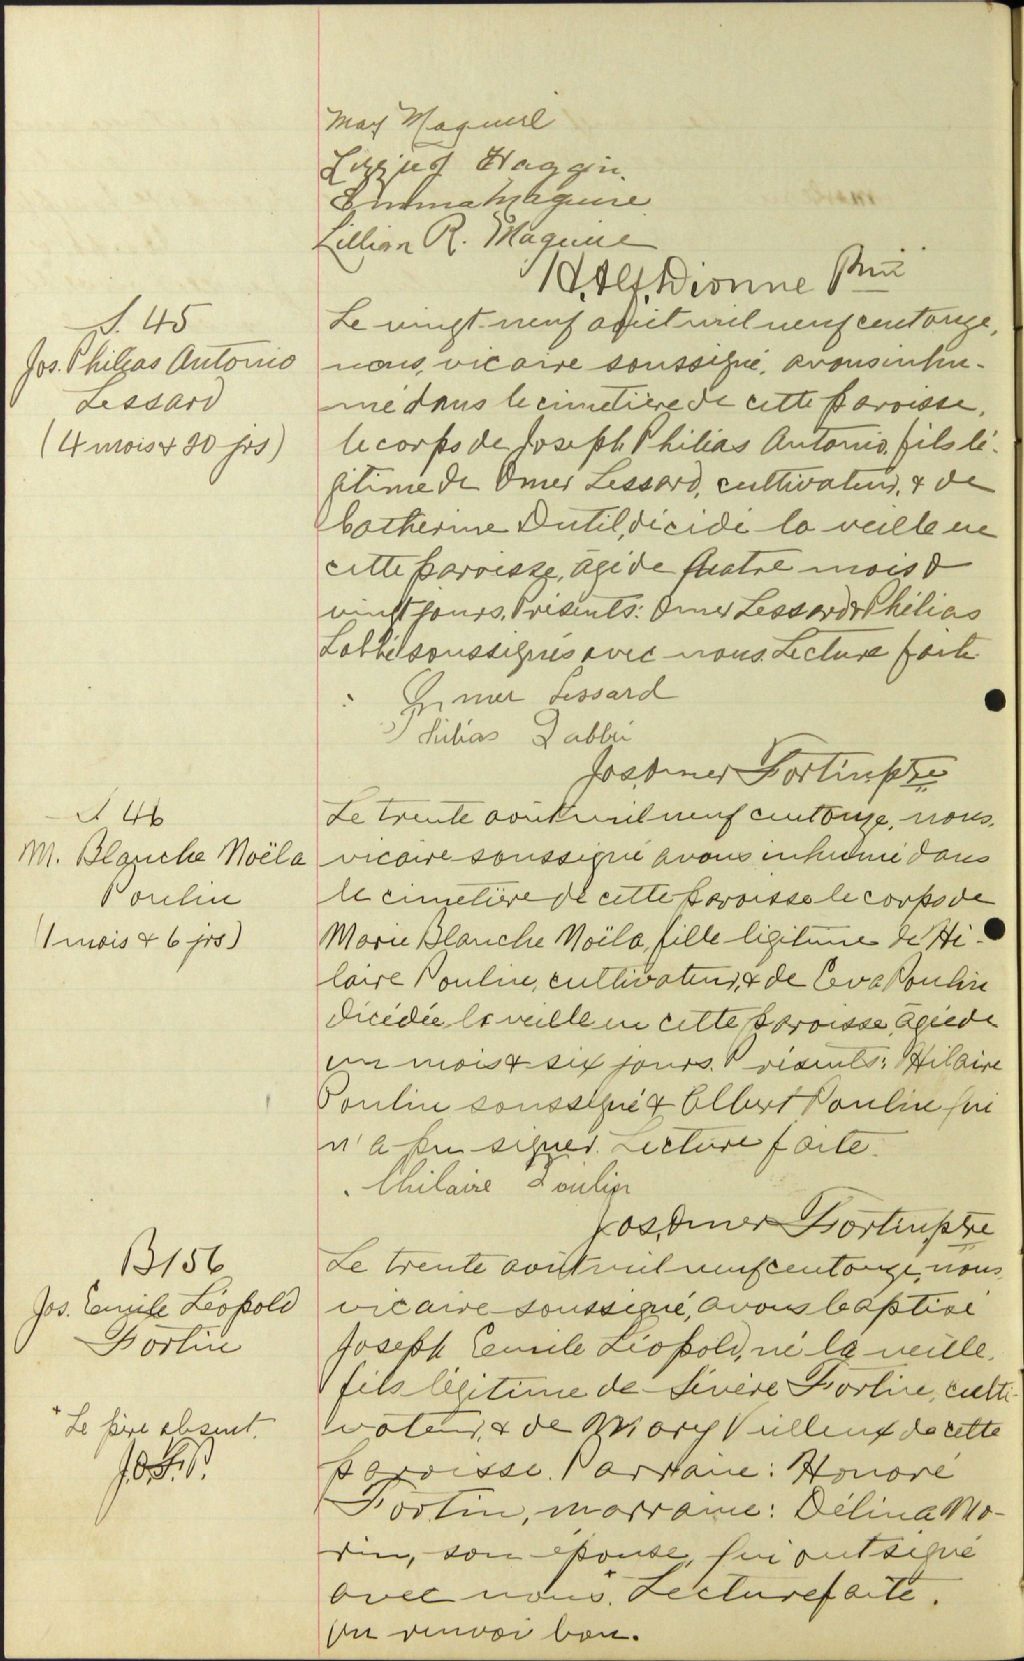 May Maguire
Lizzie J Haggin
Emma Maguire
Lillian R. Maguire
H. Alf. Dionne Ptre
S. 45
Jos. Philias Antonio
Lessard
(4 mois & 20 jrs)
Le vingt-neuf août mil neuf cent onze,
nous, vicaire soussigné, avons inhu-
mé dans le cimetière de cette paroisse,
le corps de Joseph Philias Antonio, fils lé-
gitime de Omer Lessard, cultivateur, & de
Catherine Dutil, décédé la veille en
cette paroisse, âgé de quatre mois &
vingt jours. Présents: Omer Lessard & Philias
Labbé soussignés avec nous. Lecture faite
Omer Lessard
Philias Labbé
Jos. Omer Fortin, ptre
S 46
M. Blanche Noëla
Poulin
(1 mois & 6 jrs)
Le trente août mil neuf cent onze, nous,
vicaire soussigné avons inhumé dans
le cimetière de cette paroisse le corps de
Marie Blanche Noëla, fille légitime de Hi-
laire Poulin, cultivateur, & de Eva Poulin
décédée la veille en cette paroisse, âgée de
un mois & six jours. Présents: Hilaire
Poulin soussigné & Albert Poulin qui
n'a pu signer. Lecture faite.
Chilaire Poulin
Jos. Omer Fortin, ptre
B156
Jos. Emile Léopold
Fortin
Le trente août mil neuf cent onze, nous,
vicaire soussigné, avons baptisé
Joseph Emile Léopold, né la veille,
fils légitime de Sévère Fortin, culti-
vateur, & de Mary Veilleux de cette
paroisse. Parrain: Honoré
Fortin, marraine: Délina Mo-
rin, son épouse, qui ont signé
avec nous*. Lecture faite.
un renvoi bon.
* Le père absent.
J.O.F. P.